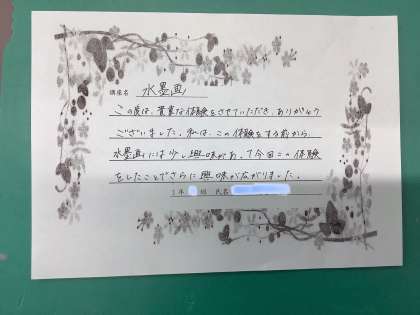 講座名 水墨画
この度は、貴重な体験をさせていただき、ありがとう
ございました。私は、この体験をする前から、
水墨画には少し興味があって今回この体験
をしたことでさらに興味が広がりました。
1年 組 氏名